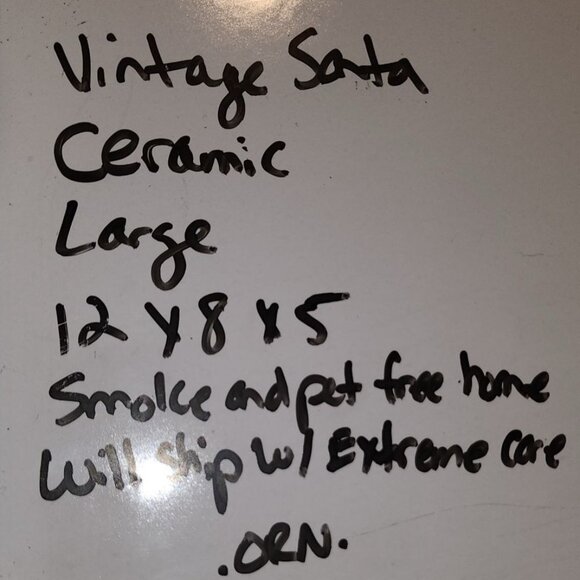 Vintage Sata
Ceramic
Large
12 x 8 x 5
Smoke and pet free home
Will ship w/ Extreme care
.ORN.